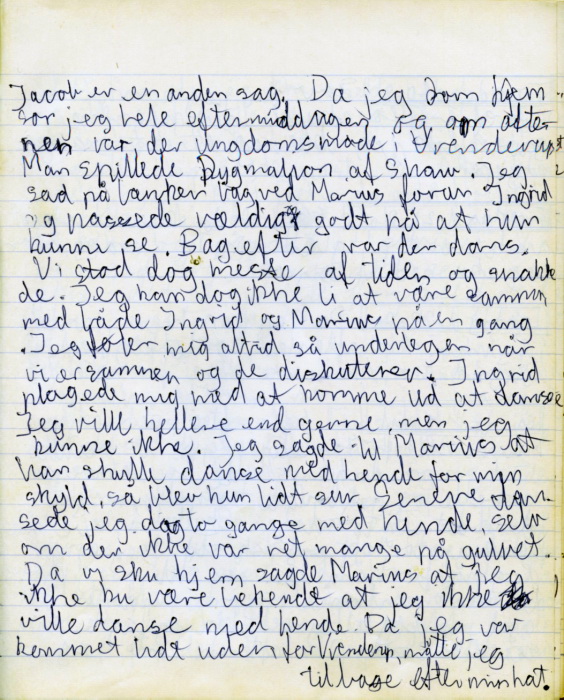 Jacob er en anden sag. Da jeg kom hjem
sov jeg hele eftermiddagen og om afte-
nen var der Ungdomsmøde i Vrenderup.
Man spillede Pygmalion af Shaw. Jeg
sad på bænken bagved Marius foran Ingrid
og passede vældigt godt på at hun
kunne se. Bagefter var der dans.
Vi stod dog meste af tiden og snakke
de. Jeg kan dog ikke li at være sammen
med både Ingrid og Marius på en gang
. Jeg føler mig altid så underlegen når
vi er sammen og de diskuterer. Ingrid
plagede mig med at komme ud at danse
Jeg ville hellere end gerne, men jeg
kunne ikke. Jeg sagde til Marius at
han skulle danse med hende for min
skyld, så blev hun lidt sur. Senere dan-
sede jeg dog to gange med hende, selv
om der ikke var ret mange på gulvet.
Da vi sku hjem sagde Marius at jeg
ikke ku være bekendt at jeg ikke
ville danse med hende. Da jeg var
kommet lidt uden for Vrenderup, måtte jeg
tilbage efter min hat.